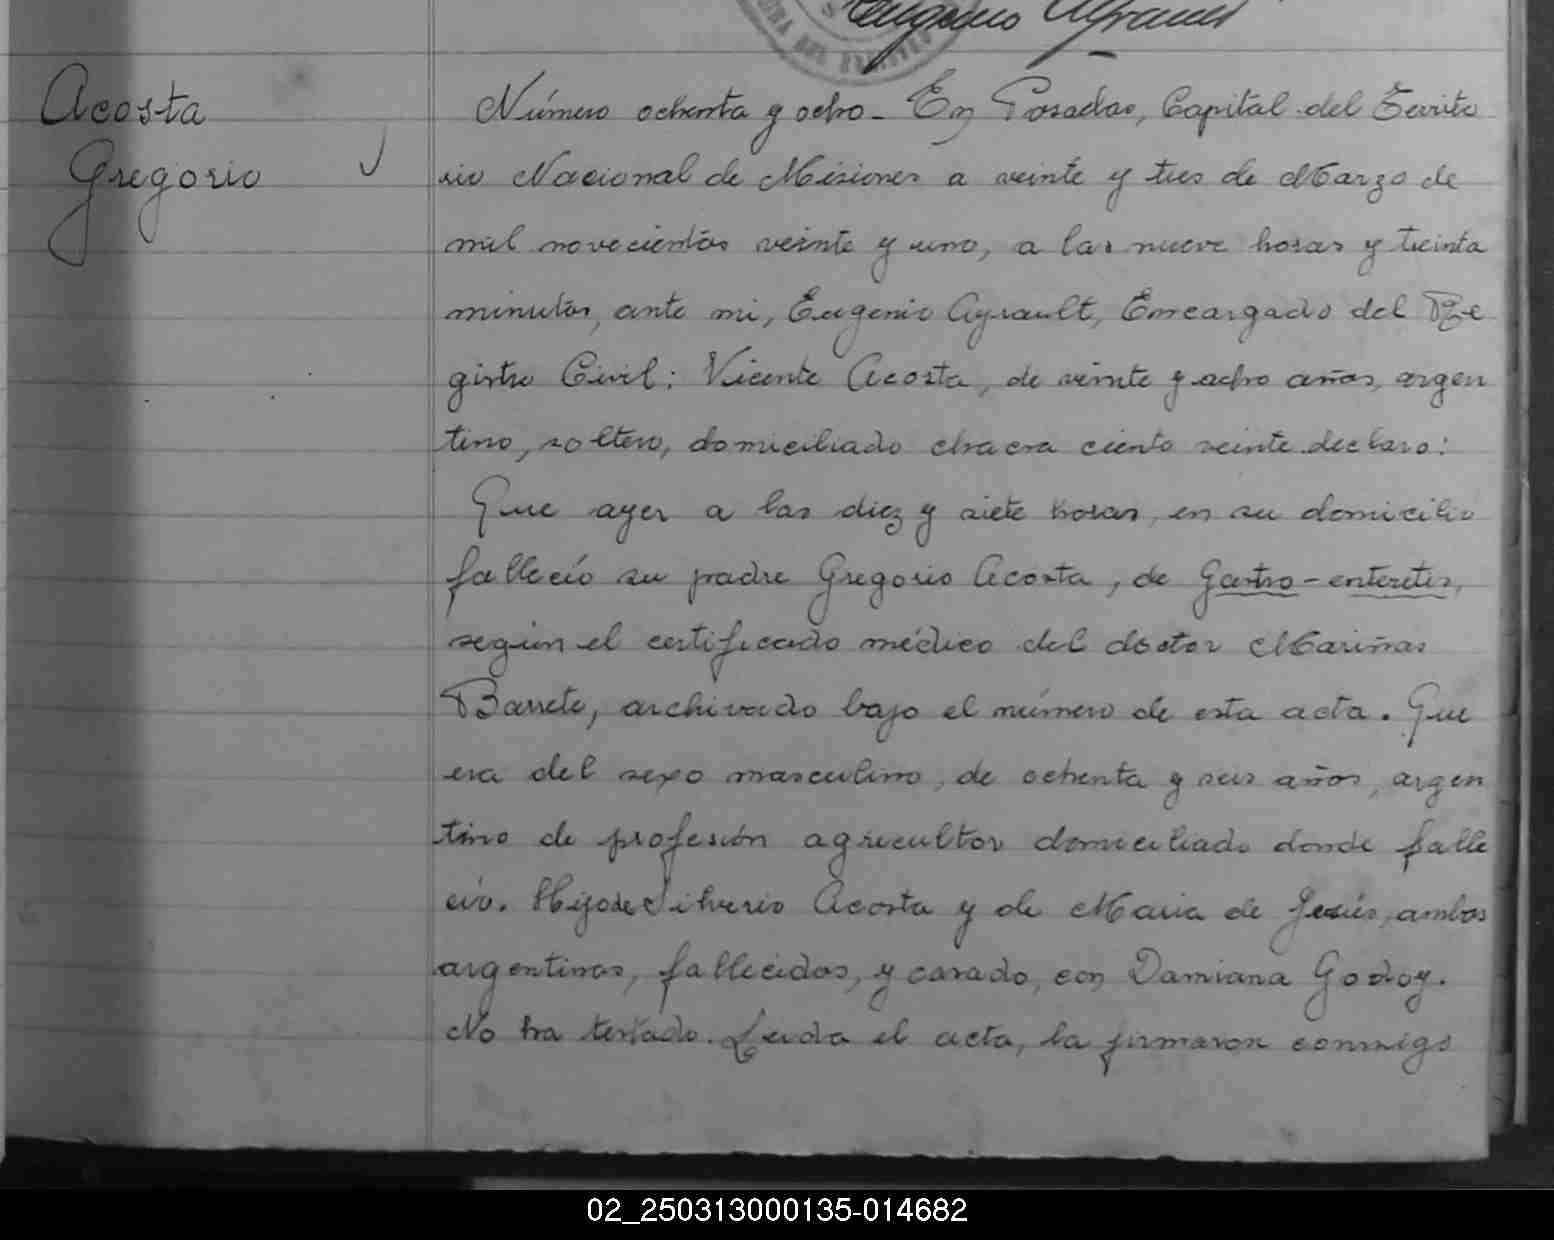 Eugenio Ayrault
Acosta
Gregorio
Número ochenta y ocho - En Posadas, Capital del Territo
rio Nacional de Misiones a veinte y tres de Marzo de
mil novecientos veinte y uno, a las nueve horas y treinta
minutos, ante mi, Eugenio Ayrault, Encargado del Re
gistro Civil: Vicente Acosta, de veinte y ocho años, argen
tino, soltero, domiciliado chacra ciento veinte declaro:
Que ayer a las diez y siete horas, en su domicilio
falleció su padre Gregorio Acosta, de Gastro-enteretis,
según el certificado médico del doctor Mariñas
Barrete, archivado bajo el número de esta acta. Que
era del sexo masculino, de ochenta y seis años, argen
tino de profesión agricultor domiciliado donde falle
ció. Hijo de Silverio Acosta y de Maria de Jesús, ambos
argentinos, fallecidos, y casado, con Damiana Godoy.
No ha testado. Leida el acta, la firmaron conmigo
02_250313000135-014682